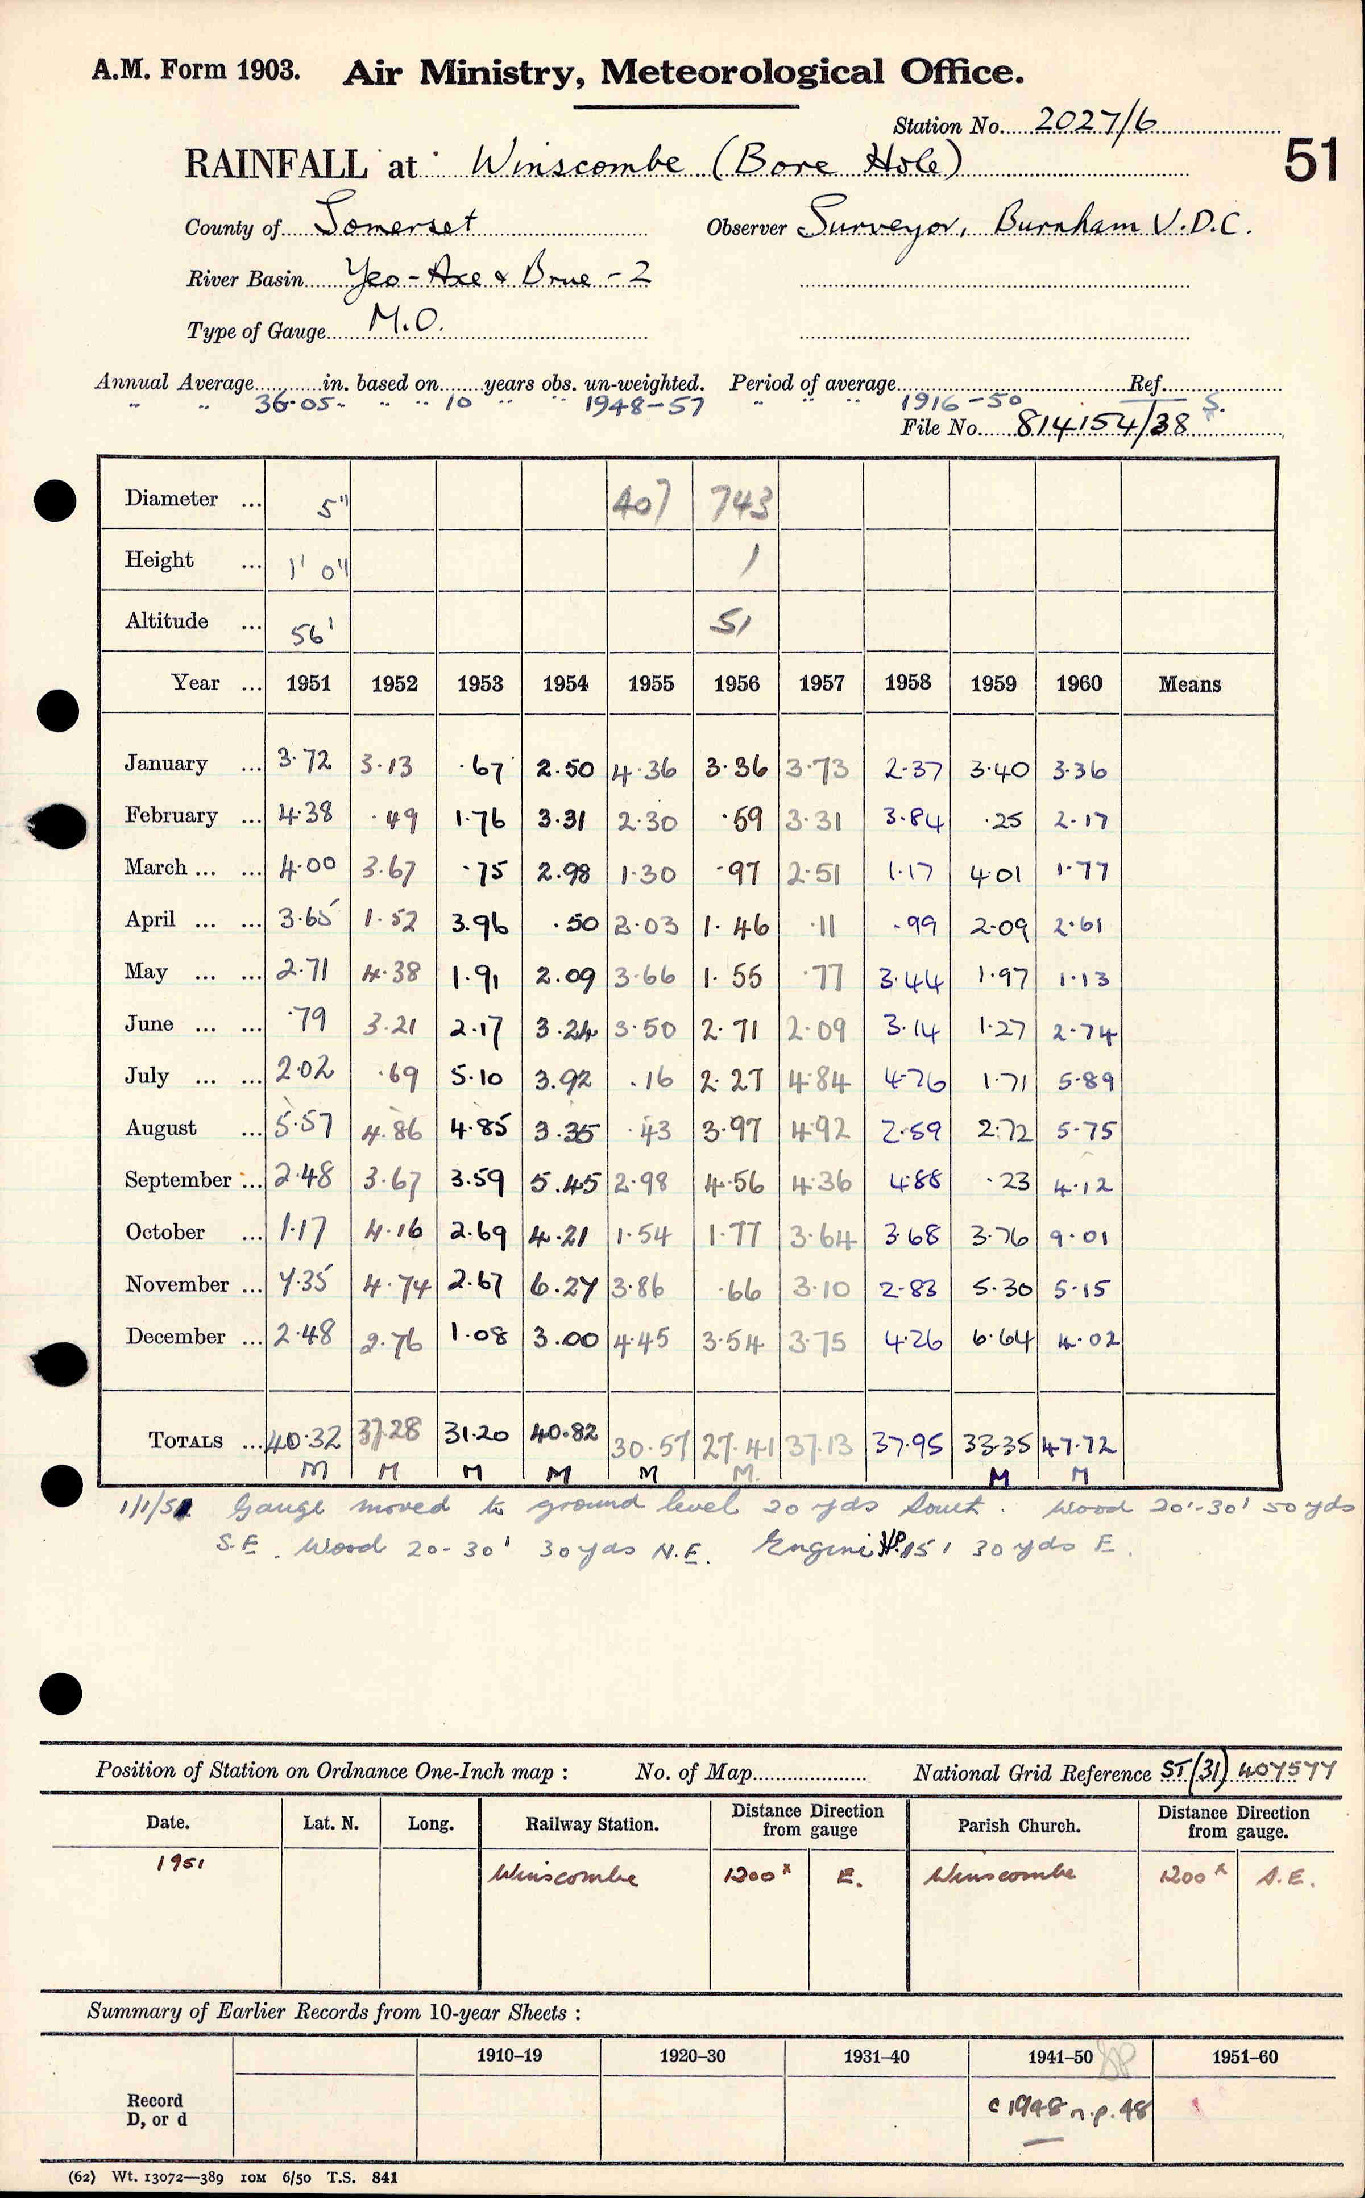 A.M. Form 1903. Air Ministry, Meteorological Office.
Station No. 2027/6
51
RAINFALL at Winscombe (Bore Hole)
County of Somerset Observer Surveyor, Burnham U.D.C.
River Basin Yeo-Axe & Brue - 2
Type of Gauge M.O.
Annual Average in. based on years obs. un-weighted. Period of average Ref.
" " 36.05 " " 10 " " 1948-57 " " " 1916-50 S.
File No. 814154/38
Diameter ... 5" 407 743
Height ... 1' 0" 1
Altitude ... 56' 51
Year ... 1951 1952 1953 1954 1955 1956 1957 1958 1959 1960 Means
January ... 3.72 3.13 .67 2.50 4.36 3.36 3.73 2.37 3.40 3.36
February ... 4.38 .49 1.76 3.31 2.30 .59 3.31 3.84 .25 2.17
March ... ... 4.00 3.67 .75 2.98 1.30 .97 2.51 1.17 4.01 1.77
April ... ... 3.65 1.52 3.96 .50 2.03 1.46 .11 .99 2.09 2.61
May ... ... 2.71 4.38 1.91 2.09 3.66 1.55 .77 3.44 1.97 1.13
June ... ... .79 3.21 2.17 3.24 3.50 2.71 2.09 3.14 1.27 2.74
July ... ... 2.02 .69 5.10 3.92 .16 2.27 4.84 4.76 1.71 5.89
August ... 5.57 4.86 4.85 3.35 .43 3.97 4.92 2.59 2.72 5.75
September ... 2.48 3.67 3.59 5.45 2.98 4.56 4.36 4.88 .23 4.12
October ... 1.17 4.16 2.69 4.21 1.54 1.77 3.64 3.68 3.76 9.01
November ... 7.35 4.74 2.67 6.27 3.86 .66 3.10 2.83 5.30 5.15
December ... 2.48 2.76 1.08 3.00 4.45 3.54 3.75 4.26 6.64 4.02
TOTALS ... 40.32 37.28 31.20 40.82 30.57 27.41 37.13 37.95 33.35 47.72
M M M M M M. M M
1/1/51 Gauge moved to ground level 20 yds South. Wood 20'-30' 50 yds
S.E. Wood 20-30' 30 yds N.E. Engine 15' 30 yds E.
Position of Station on Ordnance One-Inch map : No. of Map National Grid Reference ST(31) 407577
Date. Lat. N. Long. Railway Station. Distance Direction from gauge Parish Church. Distance Direction from gauge.
1951 Winscombe 1200x E. Winscombe 1200x S.E.
Summary of Earlier Records from 10-year Sheets :
1910-19 1920-30 1931-40 1941-50 1951-60
Record
D, or d
c 1948 n.p. 48
(62) Wt. 13072—389 10M 6/50 T.S. 841